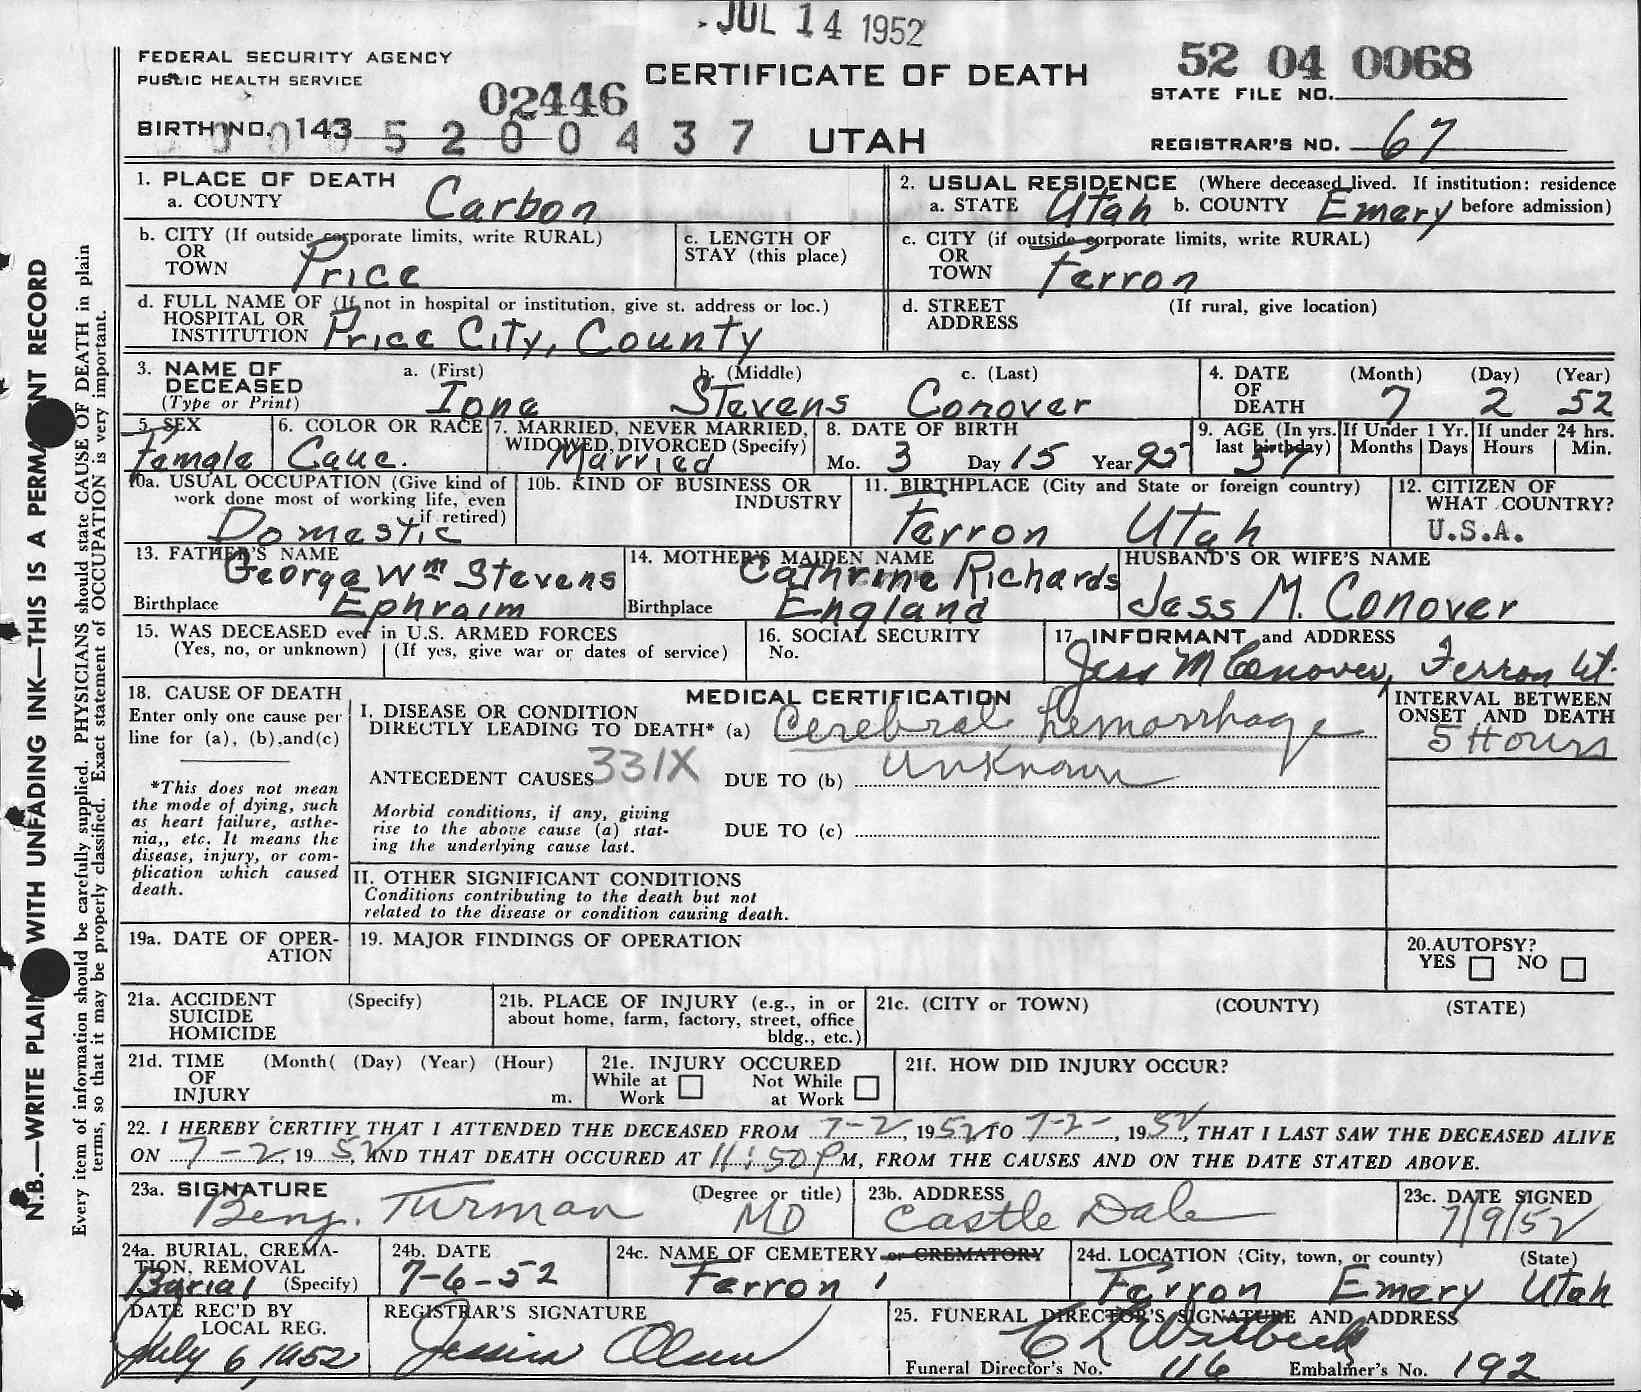 JUL 14 1952
FEDERAL SECURITY AGENCY
PUBLIC HEALTH SERVICE
02446
CERTIFICATE OF DEATH
52 04 0068
STATE FILE NO.
BIRTH NO. 143 5200437 UTAH
REGISTRAR'S NO. 67
N.B.—WRITE PLAIN WITH UNFADING INK—THIS IS A PERMANENT RECORD
Every item of information should be carefully supplied. PHYSICIANS should state CAUSE OF DEATH in plain
terms, so that it may be properly classified. Exact statement of OCCUPATION is very important.
1. PLACE OF DEATH
a. COUNTY Carbon
2. USUAL RESIDENCE (Where deceased lived. If institution: residence
a. STATE Utah b. COUNTY Emery before admission)
b. CITY (If outside corporate limits, write RURAL)
OR
TOWN Price
c. LENGTH OF
STAY (this place)
c. CITY (if outside corporate limits, write RURAL)
OR
TOWN Ferron
d. FULL NAME OF (If not in hospital or institution, give st. address or loc.)
HOSPITAL OR
INSTITUTION Price City, County
d. STREET (If rural, give location)
ADDRESS
3. NAME OF a. (First) b. (Middle) c. (Last)
DECEASED
(Type or Print) Ione Stevens Conover
4. DATE (Month) (Day) (Year)
OF
DEATH 7 2 52
5. SEX
Female
6. COLOR OR RACE
Cauc.
7. MARRIED, NEVER MARRIED,
WIDOWED, DIVORCED (Specify)
Married
8. DATE OF BIRTH
Mo. 3 Day 15 Year 95
9. AGE (In yrs.
last birthday)
57
If Under 1 Yr.
Months Days
If under 24 hrs.
Hours Min.
10a. USUAL OCCUPATION (Give kind of
work done most of working life, even
if retired)
Domestic
10b. KIND OF BUSINESS OR
INDUSTRY
11. BIRTHPLACE (City and State or foreign country)
Ferron Utah
12. CITIZEN OF
WHAT COUNTRY?
U.S.A.
13. FATHER'S NAME
George Wm Stevens
Birthplace Ephraim
14. MOTHER'S MAIDEN NAME
Cathrine Richards
Birthplace England
HUSBAND'S OR WIFE'S NAME
Jess M. Conover
15. WAS DECEASED ever in U.S. ARMED FORCES
(Yes, no, or unknown) (If yes, give war or dates of service)
16. SOCIAL SECURITY
No.
17. INFORMANT and ADDRESS
Jess M Conover, Ferron Ut.
18. CAUSE OF DEATH
Enter only one cause per
line for (a), (b),and(c)
*This does not mean
the mode of dying, such
as heart failure, asthe-
nia,, etc. It means the
disease, injury, or com-
plication which caused
death.
MEDICAL CERTIFICATION
I. DISEASE OR CONDITION
DIRECTLY LEADING TO DEATH* (a) Cerebral hemorrhage
ANTECEDENT CAUSES 331X DUE TO (b) Unknown
Morbid conditions, if any, giving
rise to the above cause (a) stat-
ing the underlying cause last.
DUE TO (c)
INTERVAL BETWEEN
ONSET AND DEATH
5 Hours
II. OTHER SIGNIFICANT CONDITIONS
Conditions contributing to the death but not
related to the disease or condition causing death.
19a. DATE OF OPER-
ATION
19. MAJOR FINDINGS OF OPERATION
20.AUTOPSY?
YES NO
21a. ACCIDENT (Specify)
SUICIDE
HOMICIDE
21b. PLACE OF INJURY (e.g., in or
about home, farm, factory, street, office
bldg., etc.)
21c. (CITY or TOWN) (COUNTY) (STATE)
21d. TIME (Month( (Day) (Year) (Hour)
OF
INJURY m.
21e. INJURY OCCURED
While at Not While
Work at Work
21f. HOW DID INJURY OCCUR?
22. I HEREBY CERTIFY THAT I ATTENDED THE DECEASED FROM 7-2, 1952 TO 7-2-, 1952, THAT I LAST SAW THE DECEASED ALIVE
ON 7-2, 1952, AND THAT DEATH OCCURED AT 11:50 PM, FROM THE CAUSES AND ON THE DATE STATED ABOVE.
23a. SIGNATURE (Degree or title)
Benj. Turman MD
23b. ADDRESS
Castle Dale
23c. DATE SIGNED
7/9/52
24a. BURIAL, CREMA-
TION, REMOVAL
Burial (Specify)
24b. DATE
7-6-52
24c. NAME OF CEMETERY or CREMATORY
Ferron
24d. LOCATION (City, town, or county) (State)
Ferron Emery Utah
DATE REC'D BY
LOCAL REG.
July 6, 1952
REGISTRAR'S SIGNATURE
Jessica Olsen
25. FUNERAL DIRECTOR'S SIGNATURE AND ADDRESS
Funeral Director's No. 116 Embalmer's No. 192